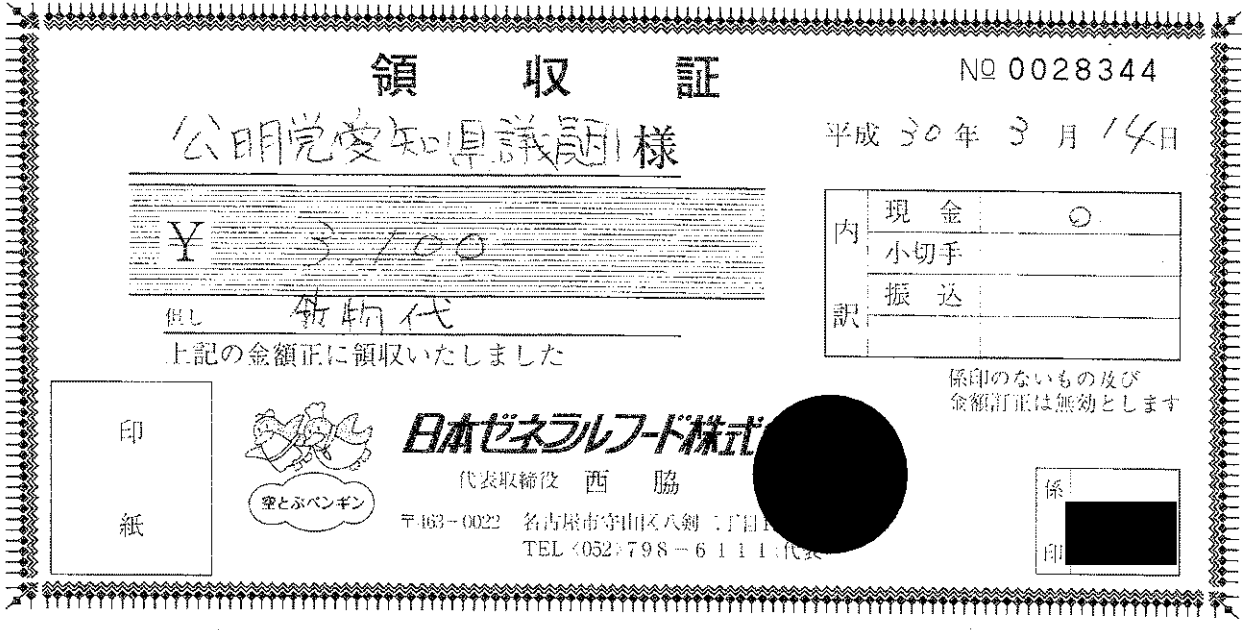 領 収 証
№ 0028344
公明党愛知県議団 様
平成 30 年 3 月 14 日
¥ 3,100
但し 飲物代
上記の金額正に領収いたしました
内訳
現 金 ○
小切手
振 込
係印のないもの及び
金額訂正は無効とします
印
紙
空とぶペンギン
日本ゼネラルフード株式
代表取締役 西 脇
〒463-0022 名古屋市守山区八剣二丁目
TEL〈052〉798-6111(代表
係
印